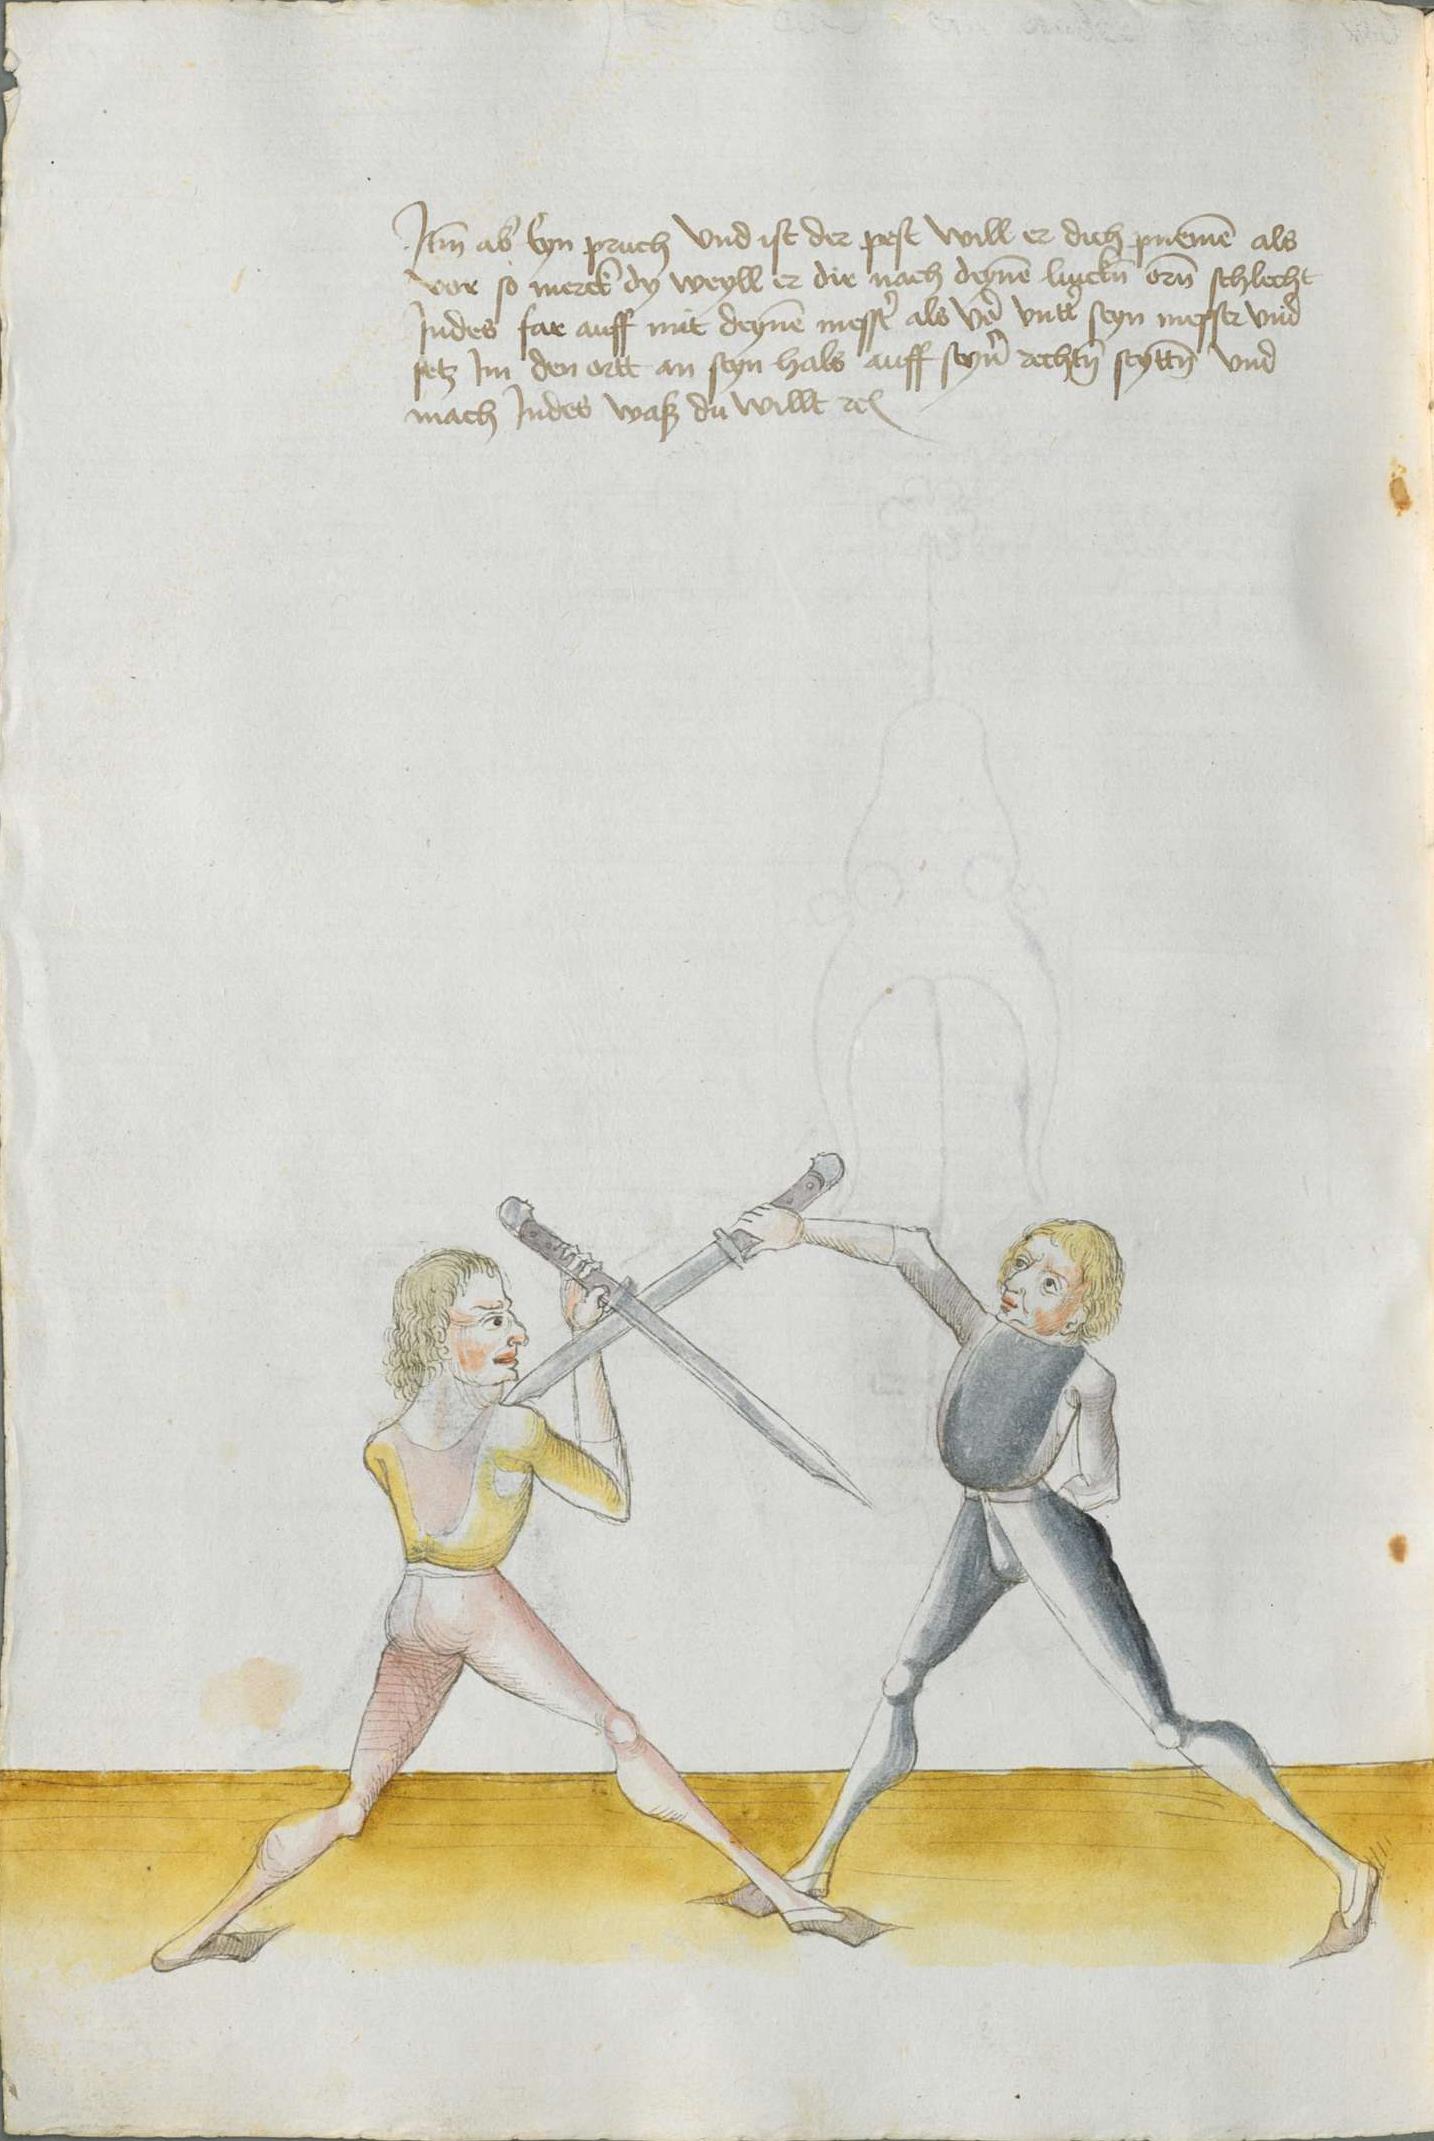 Itm̄ ab' Eyn pruch Vnd ist der pest Will er dich pnemē als
vor so merck dy weyll er dir nach deynē linckñ orñ schlecht
Indes far auff mit deynē mess' als vor̃ vntt' seyn messer vnd
setz Im den ortt an seyn hals auff seyñ rechtñ seyttñ Vnd
mach Indes waß du willt